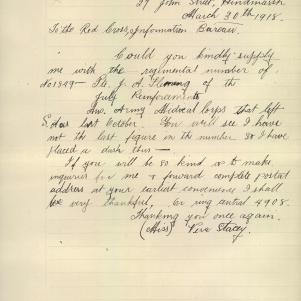 John Street, Hindmarsh
March 20th 1918.
To the Red Cross, Information Bureau
Could you kindly supply
me with the regimental number of
No 1349- Pte. J. A. Fleming of the
July Reinforcements
Army Medical Corps that left
S. Aus last October. You will see I have
not the last figure in the number so I have
placed a dash thus —
If you will be so kind as to make
inquiries for me & forward complete postal
address at your earliest convenience I shall
be very thankful, or ring Central 4908.
Thanking you once again.
(Miss) Vera Stacey.